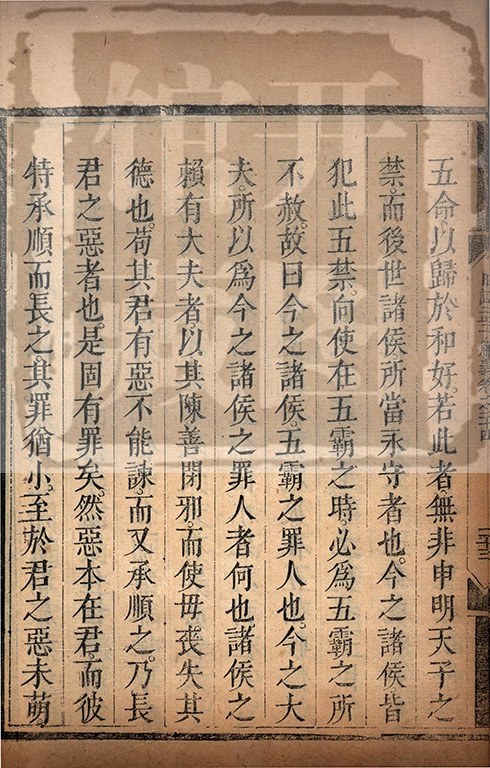 五命。以歸於和好。若此者。無非申明天子之
禁。而後世諸侯。所當永守者也。今之諸侯。皆
犯此五禁。向使在五霸之時。必爲五霸之所
不赦。故曰今之諸侯。五霸之罪人也。今之大
夫。所以爲今之諸侯之罪人者何也。諸侯之
賴有大夫者。以其陳善閉邪。而使毋喪失其
德也。苟其君有惡不能諫。而又承順之。乃長
君之惡者也。是固有罪矣。然惡本在君。而彼
特承順而長之。其罪猶小。至於君之惡未萌